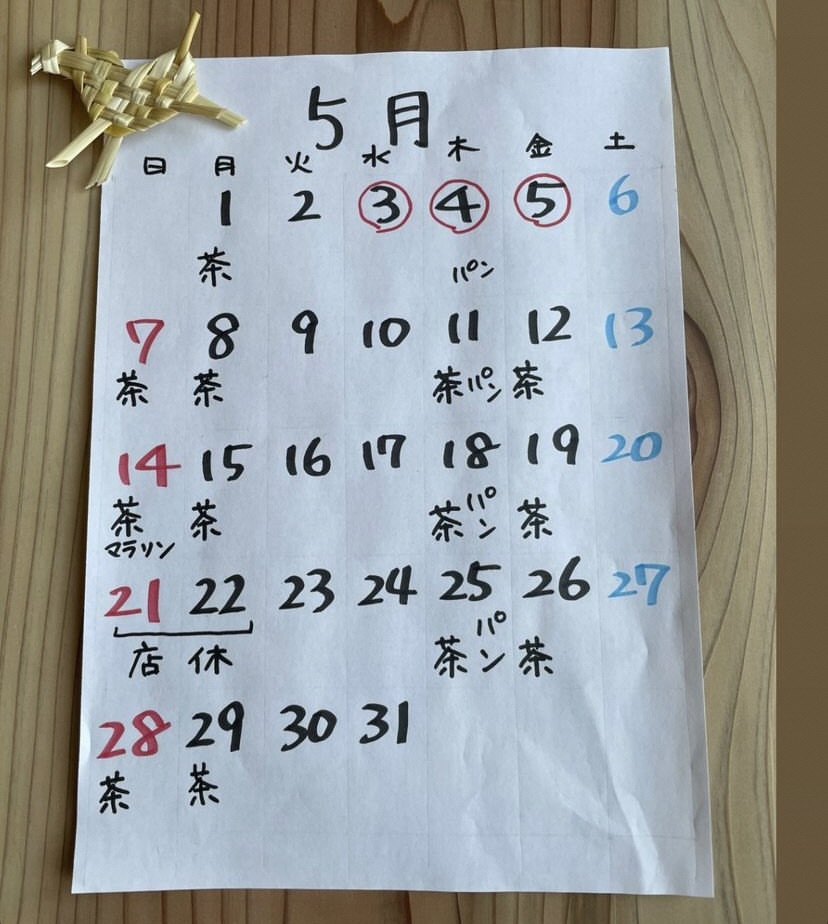 5月
日 月 火 水 木 金 土
1 2 3 4 5 6
茶 パン
7 8 9 10 11 12 13
茶 茶 茶 パン 茶
14 15 16 17 18 19 20
茶 茶 茶 パン 茶
マラソン
21 22 23 24 25 26 27
店 休 茶 パン 茶
28 29 30 31
茶 茶